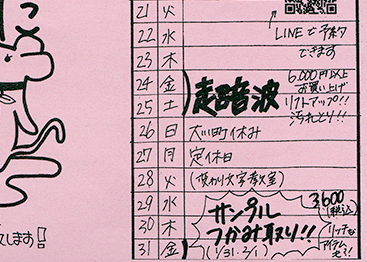 21 火
22 水
LINEで予約
できます
23 木
24 金
25 土
超音波
6,000円以上
お買い上げ
リフトアップ!!
汚れとり!!
26 日
27 月 定休日
28 火
29 水
30 木
31 金
サンプル
つかみ取り!!
(1/31・2/1)
3,600
(税込)
リッチな
アイテム
も?!
します!!